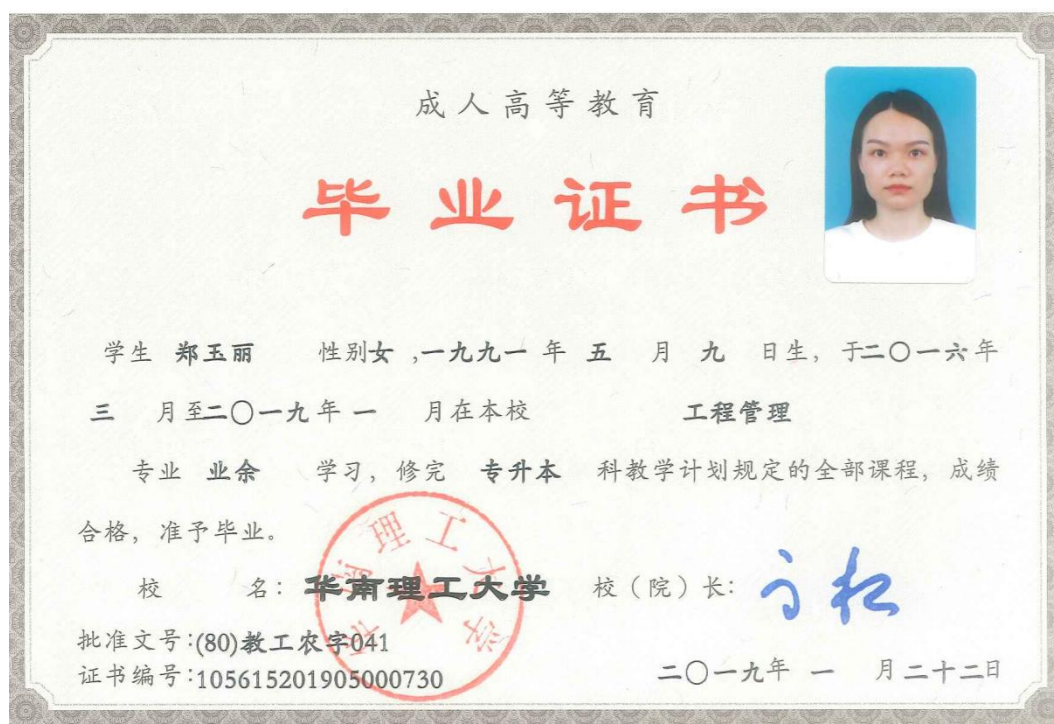 成人高等教育
毕业证书
学生 郑玉丽 性别女 ,一九九一 年 五 月 九 日生, 于二〇一六年
三 月至二〇一九年 一 月在本校 工程管理
专业 业余 学习, 修完 专升本 科教学计划规定的全部课程, 成绩
合格, 准予毕业。
华南理工大学
校 名: 华南理工大学 校(院)长:
批准文号:(80)教工农字041
证书编号:105615201905000730
二〇一九年 一 月二十二日